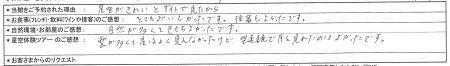 *当館をご予約された理由： 星空がきれいとサイトで見たから
*お食事(フレンチ)・飲料(ワインや接客)のご感想： とてもおいしかったです。接客もよかったです。
*自然環境・お部屋のご感想： 自然が多くて良かったです。
*星空体験ツアーのご感想： 雲が多くて星はよく見えなかったけど、望遠鏡で月を見れたのはよかったです。
*お客さまからのリクエスト